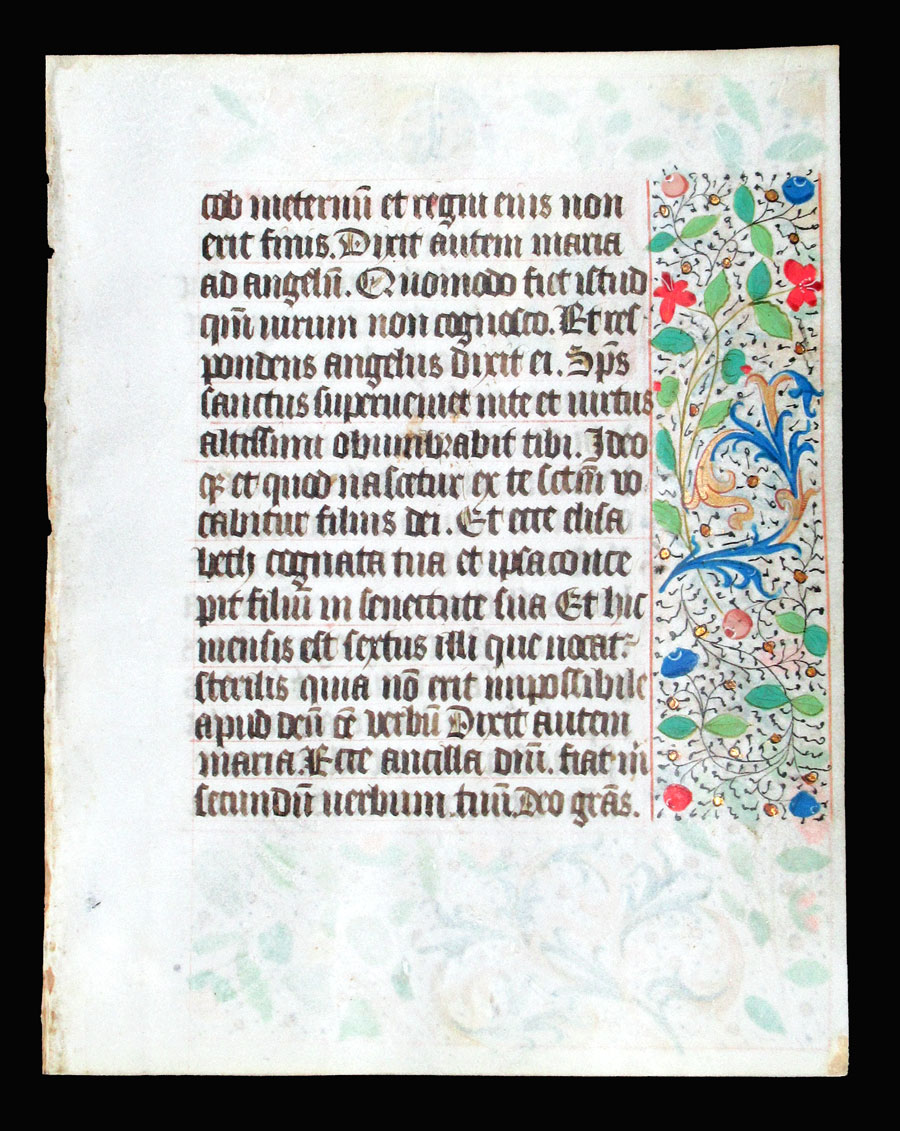 cob ineternū et regni eius non
erit finis. Dixit autem maria
ad angelū. Quomodo fiet istud
qm̄ uirum non cognosco. Et res
pondens angelus dixit ei. Sp̄s
sanctus superueniet inte et uirtus
altissimi obumbrabit tibi. Ideo
q̄ et quod nascetur ex te sctm̄ vo
cabitur filius dei. Et ecce elisa
beth cognata tua et ipsa conce
pit filiū in senectute sua Et hic
mensis est sextus illi que uocat᷑
sterilis quia nō erit impossibile
apud deū om̄e verbū Dixit autem
maria. Ecce ancilla dn̄i. fiat m̄
secundū uerbum tuū. Deo grās.